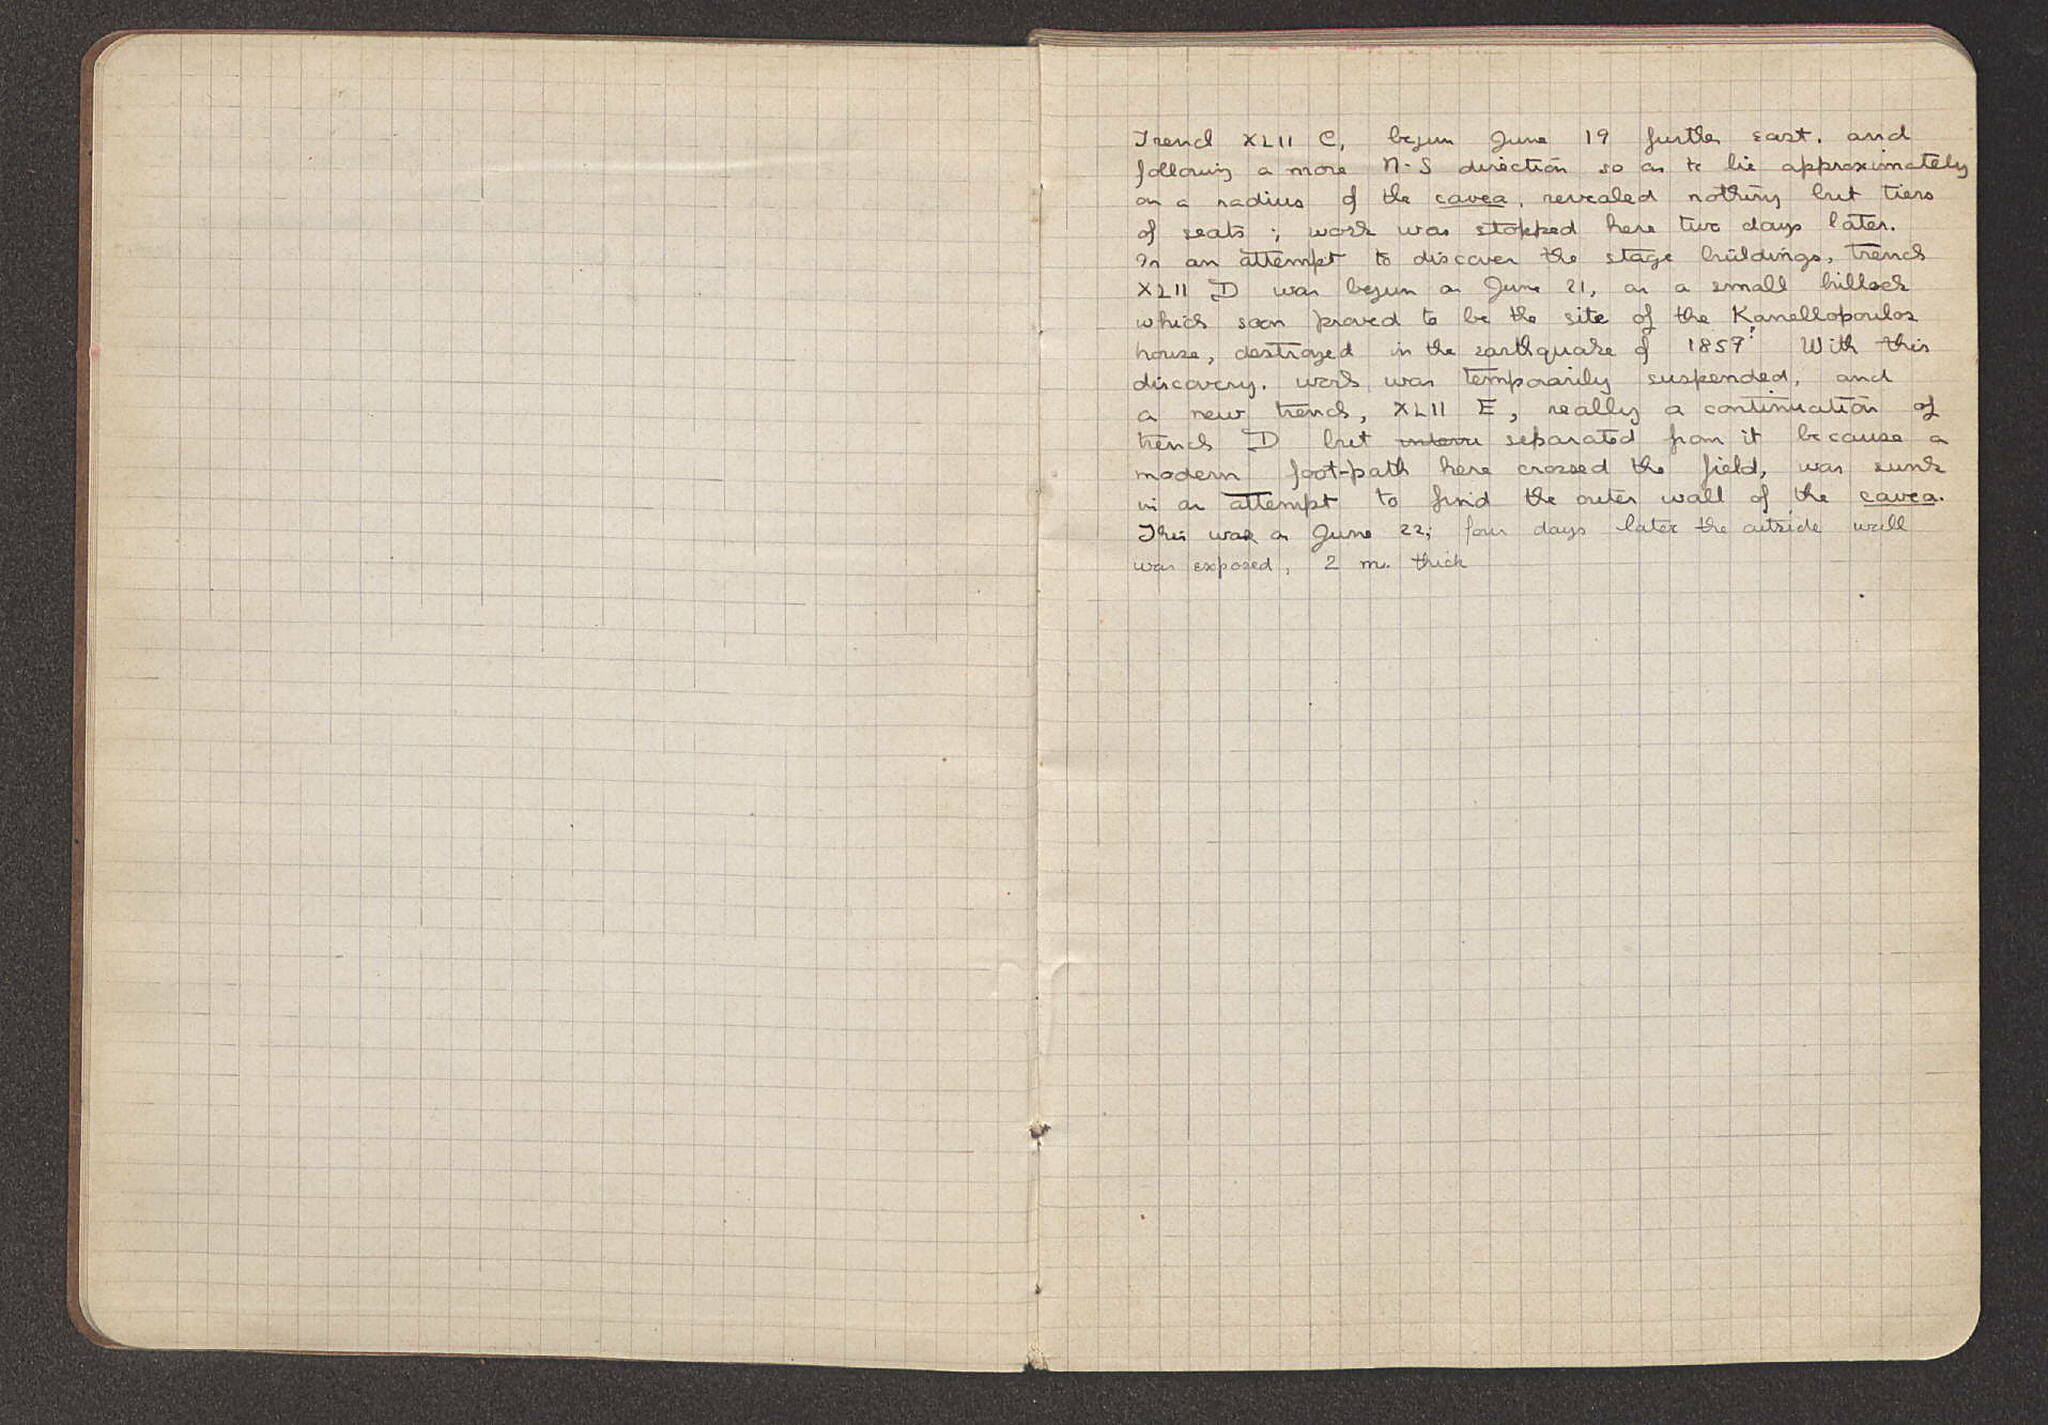 Trench XLII C, begun June 19 further east, and
following a more N-S direction so as to lie approximately
on a radius of the cavea, revealed nothing but tiers
of seats ; work was stopped here two days later.
In an attempt to discover the stage buildings, trench
XLII D was begun on June 21, on a small hillock
which soon proved to be the site of the Kanellopoulos
house, destroyed in the earthquake of 1859? With this
discovery, work was temporarily suspended, and
a new trench, XLII E, really a continuation of
trench D but separated from it because a
modern foot-path here crossed the field, was sunk
in an attempt to find the outer wall of the cavea.
This was on June 22; four days later the outside wall
was exposed, 2 m. thick